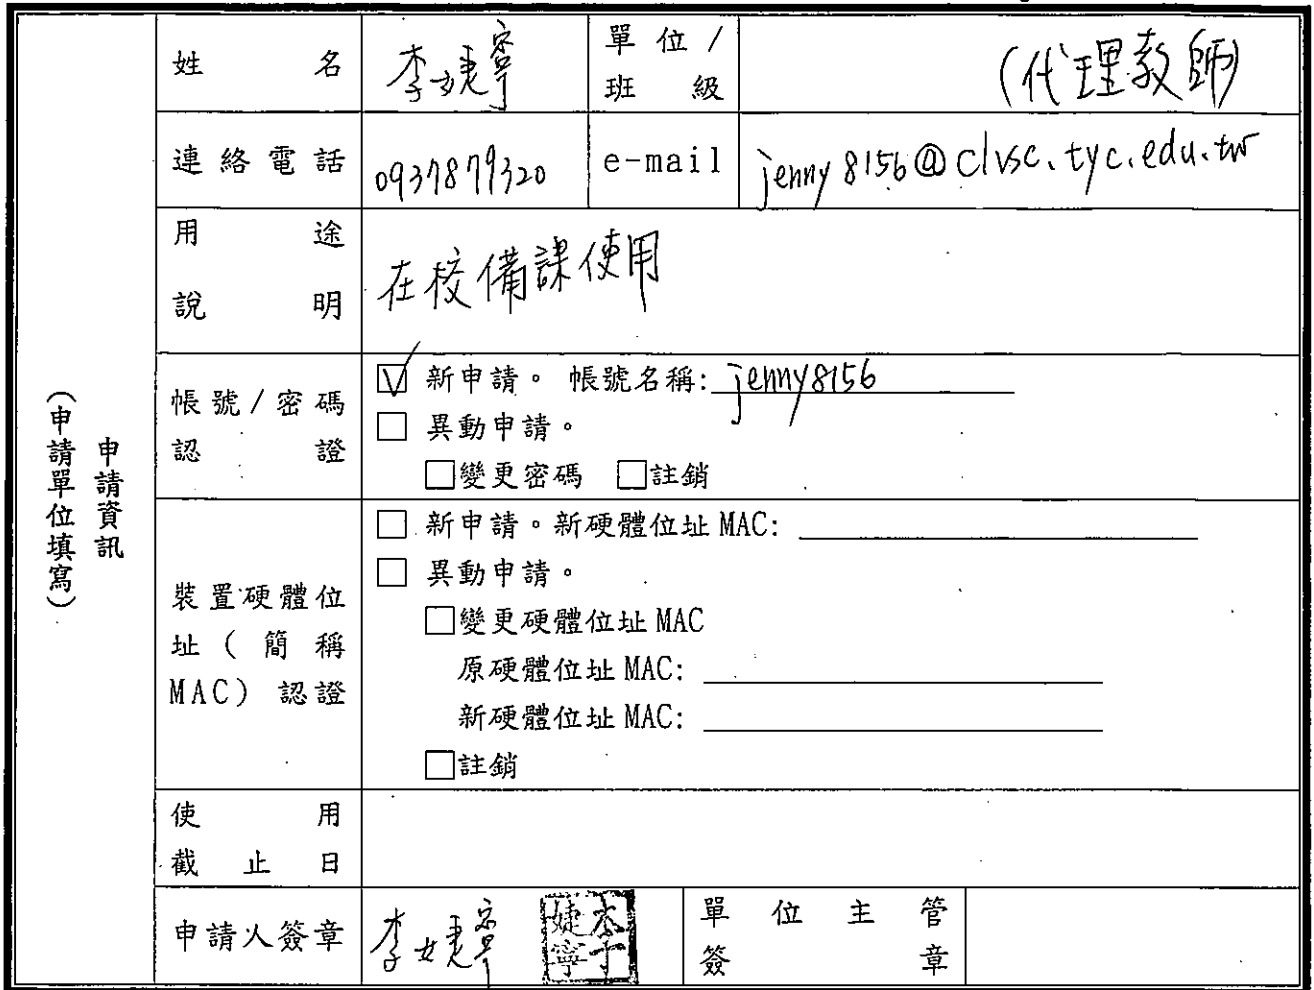 姓名 李婕寧 單位/班級 (代理教師)
連絡電話 0937879320 e-mail jenny8156@clvsc.tyc.edu.tw
用途說明 在校備課使用
(申請單位填寫)
申請資訊
帳號/密碼認證
☑ 新申請。 帳號名稱: jenny8156
□ 異動申請。
□變更密碼 □註銷
裝置硬體位址(簡稱MAC) 認證
□ 新申請。新硬體位址 MAC:
□ 異動申請。
□變更硬體位址 MAC
原硬體位址 MAC:
新硬體位址 MAC:
□註銷
使用截止日
申請人簽章 李婕寧 李婕寧 單位主管簽章